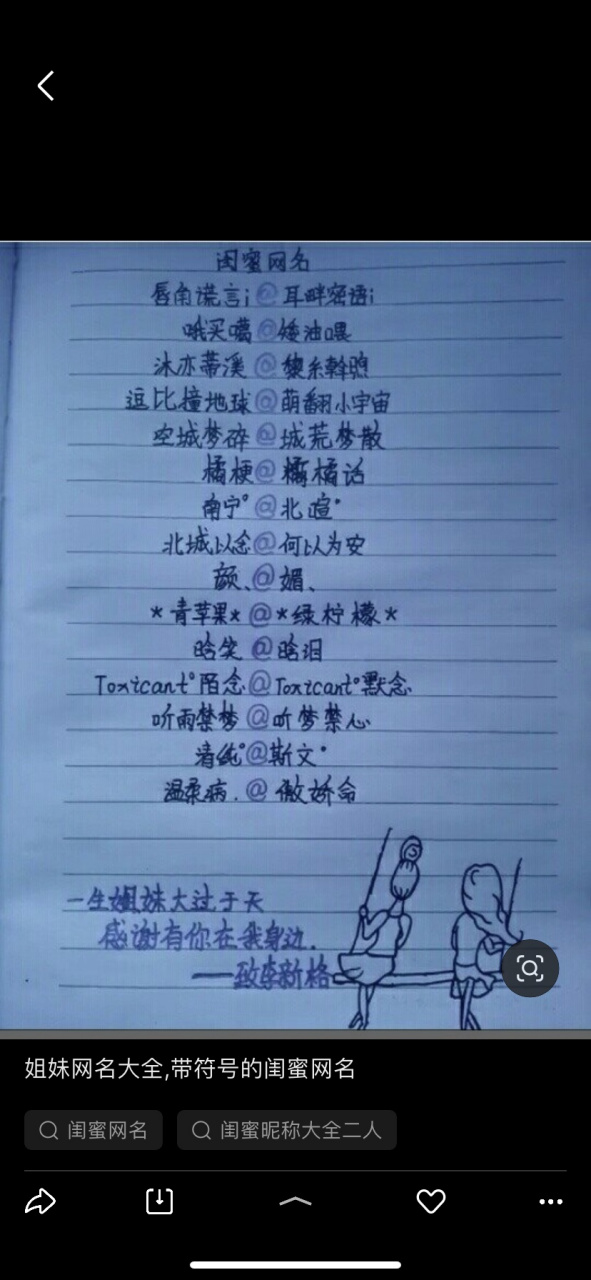 闺蜜网名
唇角谎言i@耳畔密语i
哦买噶@矮油喂
沐亦蒂溪@黎系斡煦
逗比撞地球@萌翻小宇宙
空城梦碎@城荒梦散
橘梗@橘话
南宁°@北暄°
北城以念@何以为安
颜、@媚、
*青苹果*@*绿柠檬*
晗笑@晗泪
Toxicant°陌念@Toxicant°默念
听雨禁梦@听梦禁心
清纯°@斯文°
温柔病.@傲娇命
一生姐妹大过于天
感谢有你在我身边.
——致李新格
姐妹网名大全,带符号的闺蜜网名
闺蜜网名
闺蜜昵称大全二人